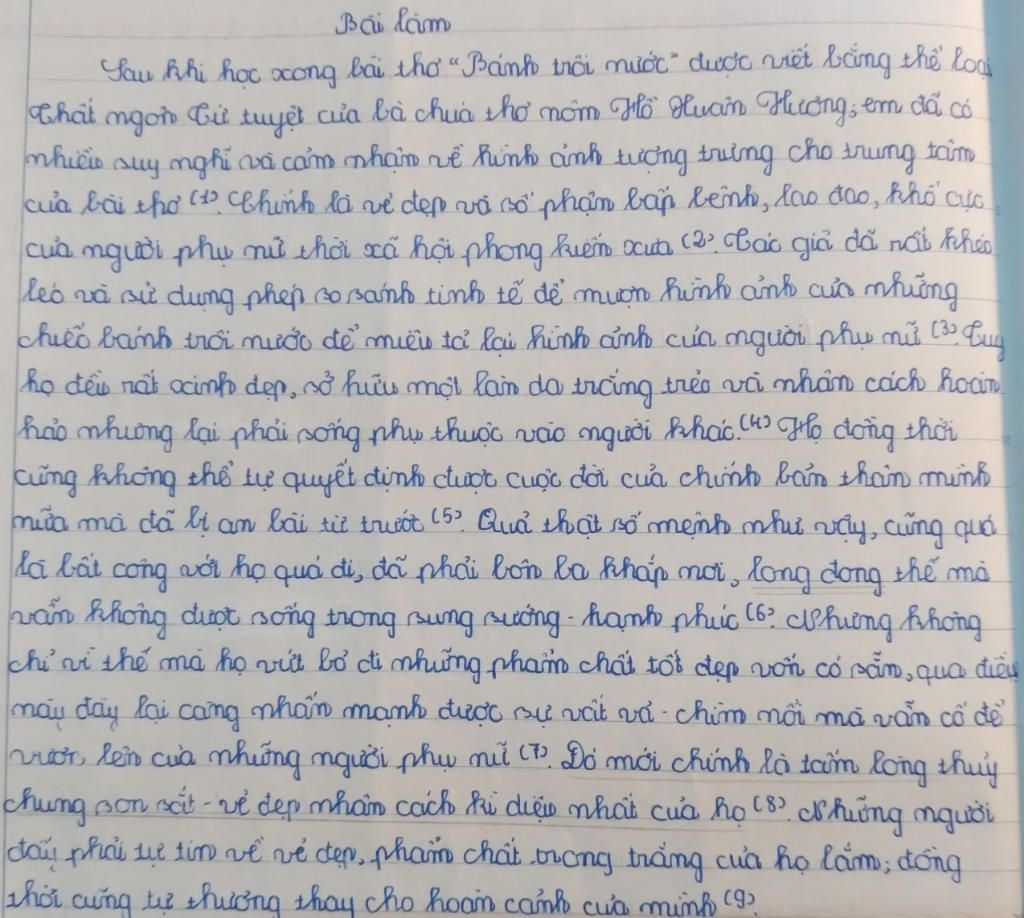 Bài làm
Sau khi học xong bài thơ "Bánh trôi nước" được viết bằng thể loại
Thất ngôn Tứ tuyệt của bà chúa thơ nôm Hồ Xuân Hương, em đã có
nhiều suy nghĩ và cảm nhận về hình ảnh tượng trưng cho trung tâm
của bài thơ (1). Chính là vẻ đẹp và số phận bấp bênh, lao đao, khổ cực
của người phụ nữ thời xã hội phong kiến xưa (2). Tác giả đã rất khéo
léo và sử dụng phép so sánh tinh tế để mượn hình ảnh của những
chiếc bánh trôi nước để miêu tả lại hình ảnh của người phụ nữ (3). Tuy
họ đều rất xinh đẹp, sở hữu một làn da trắng trẻo và nhân cách hoàn
hảo nhưng lại phải sống phụ thuộc vào người khác. (4) Họ đồng thời
cũng không thể tự quyết định được cuộc đời của chính bản thân mình
nữa mà đã bị an bài từ trước (5). Quả thật số mệnh như vậy, cũng quá
là bất công với họ quá đi, đã phải bôn ba khắp nơi, long đong thế mà
vẫn không được sống trong sung sướng - hạnh phúc (6). Nhưng không
chỉ vì thế mà họ vứt bỏ đi những phẩm chất tốt đẹp vốn có sẵn, qua điều
này đây lại càng nhấn mạnh được sự vất vả - chìm nổi mà vẫn cố để
vươn lên của những người phụ nữ (7). Đó mới chính là tấm lòng thủy
chung son sắt - vẻ đẹp nhân cách kì diệu nhất của họ (8). Những người
đấy phải tự tin về vẻ đẹp, phẩm chất trong trắng của họ lắm; đồng
thời cũng tự thương thay cho hoàn cảnh của mình (9).